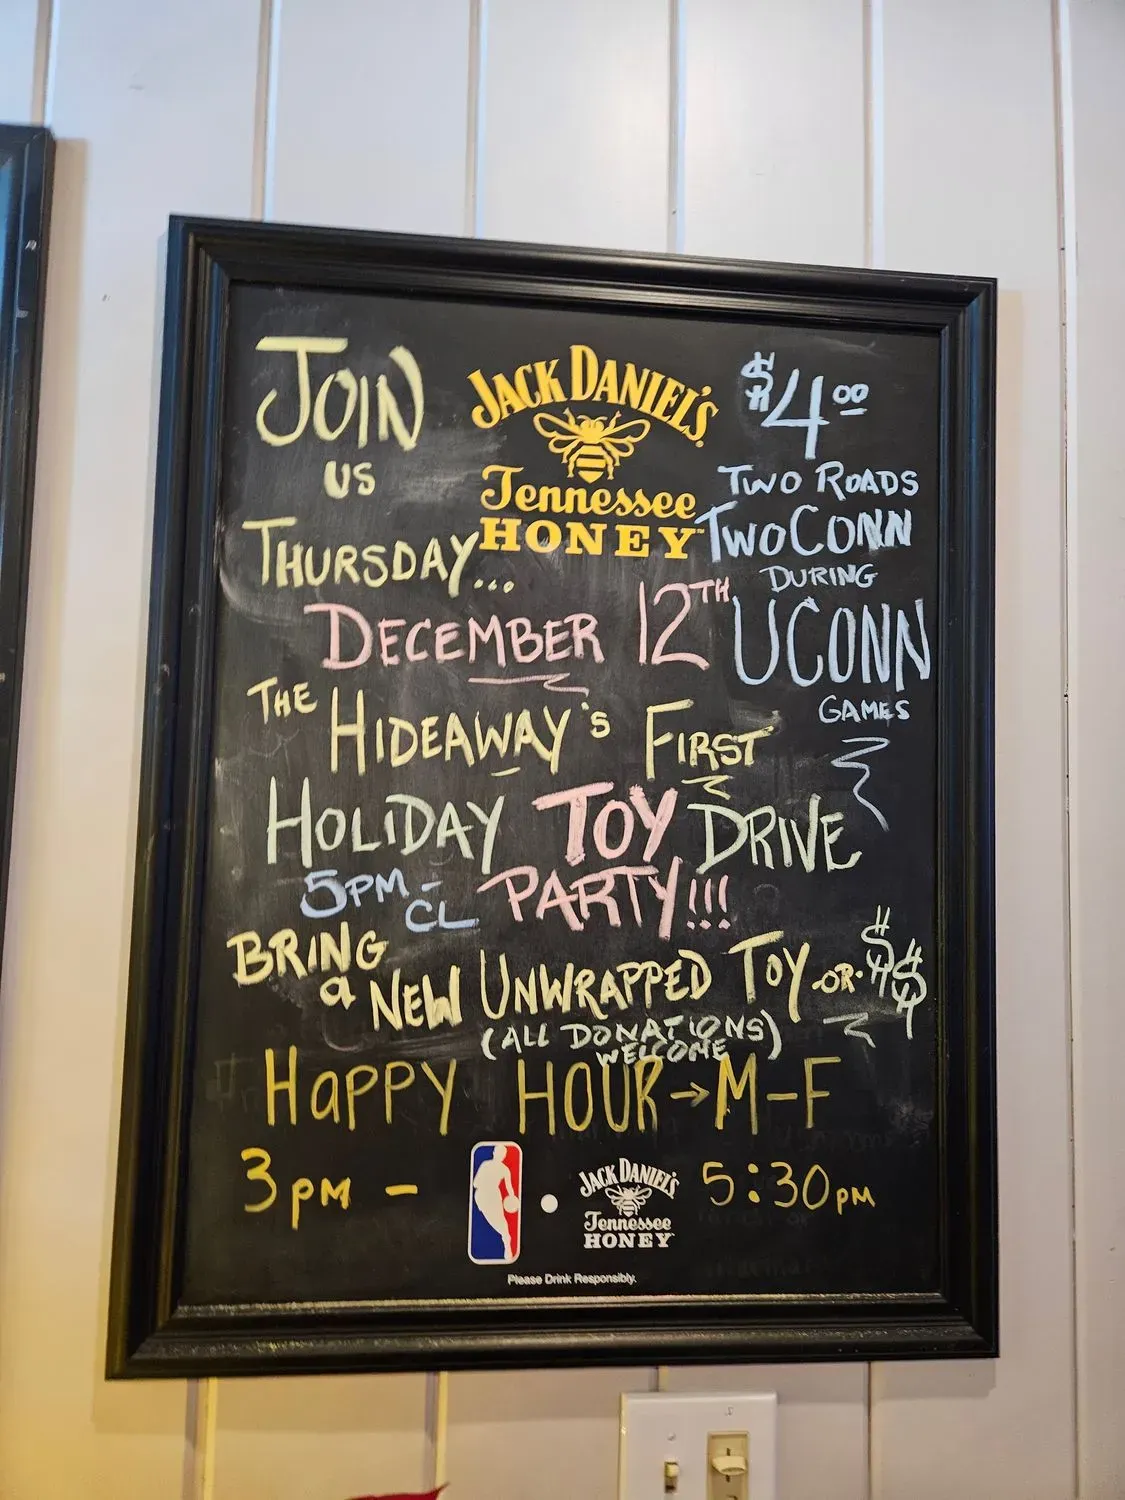 JOIN
US
THURSDAY...
JACK DANIEL'S
Tennessee
HONEY
$4.00
TWO ROADS
TWOCONN
DURING
UCONN
GAMES
DECEMBER 12TH
THE HIDEAWAY'S FIRST
HOLIDAY TOY DRIVE
5PM - CL PARTY!!!
BRING
a NEW UNWRAPPED TOY -OR- $$
(ALL DONATIONS
WELCOME)
HAPPY HOUR → M-F
3PM - 5:30PM
JACK DANIEL'S
Tennessee
HONEY
Please Drink Responsibly.